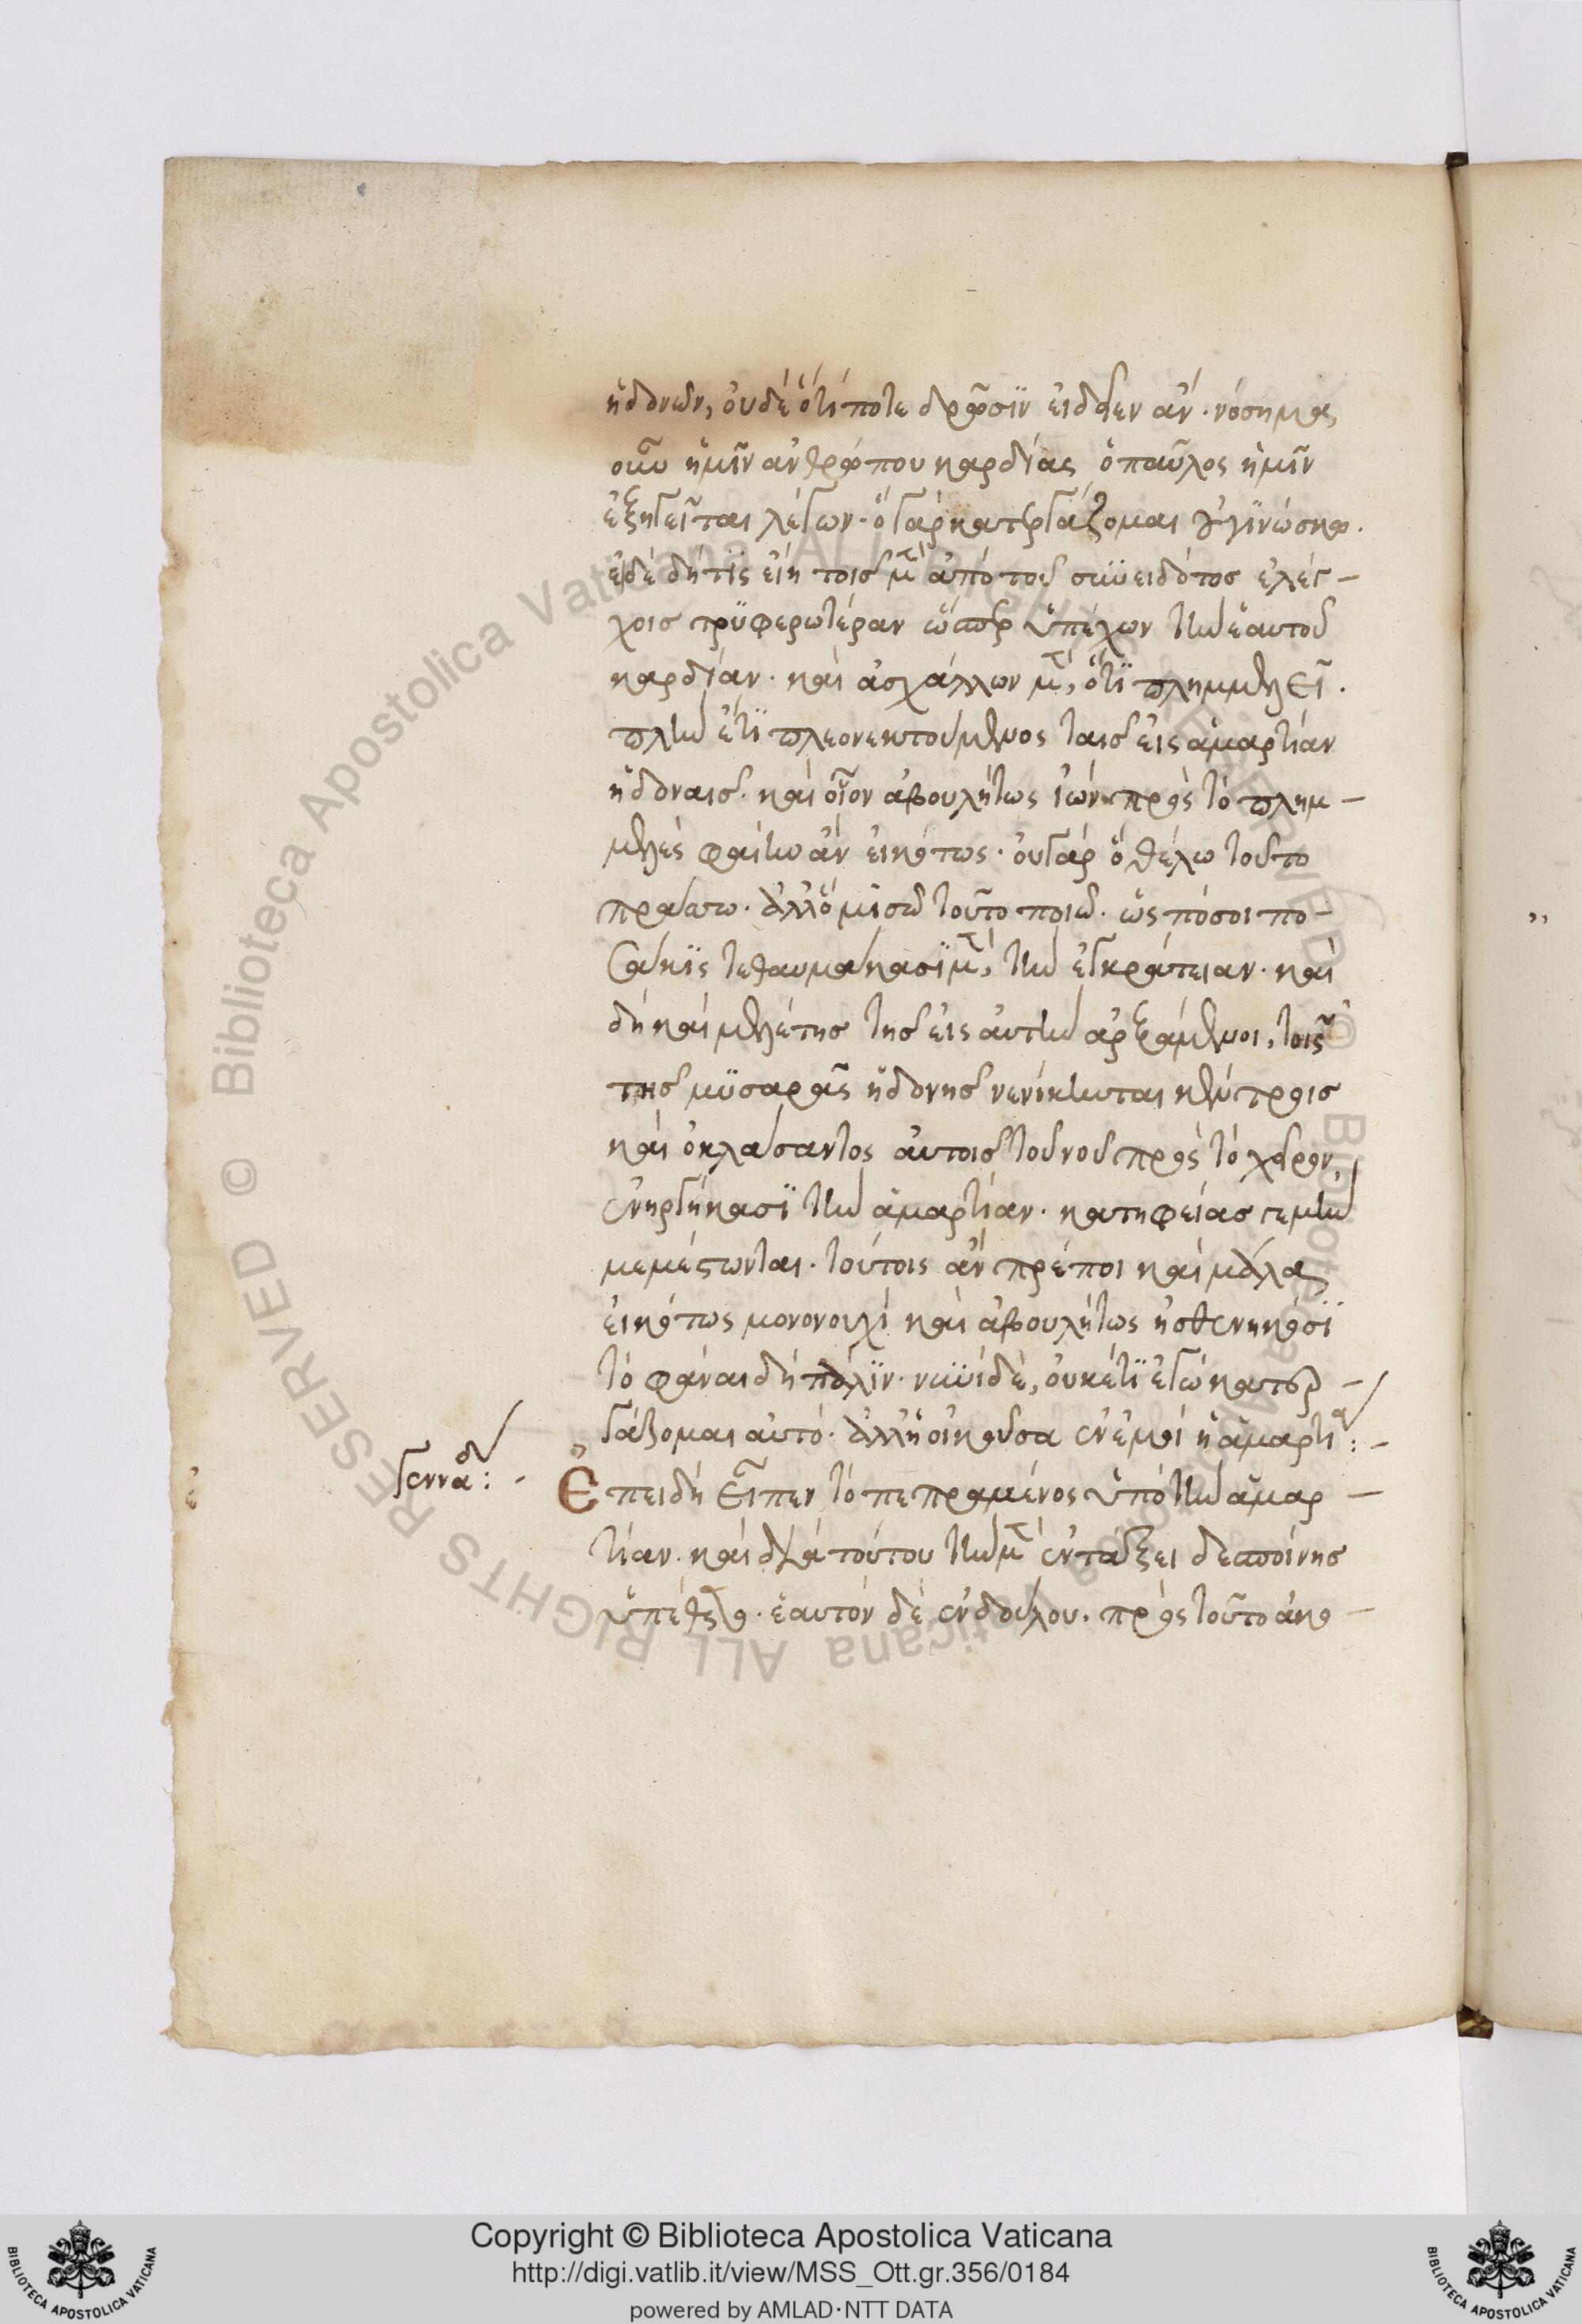 ἡδονῶν, οὐδὲ ὅτί ποτε δρῶσϊν εἰδεῖεν ἄν. νόσημα
οὖν ἡμῖν ἀνθρώπου καρδίας ὁ παῦλος ἡμῖν
ἐξηγεῖται λέγων. ὃ γὰρ κατεργάζομαι οὐ γϊνώσκω.
εἰ δὲ δή τϊς εἴη τοῖσ μὲν ἀπὸ τοῦ συνειδότοσ ἐλέγ-
χοισ τρϋφερωτέραν ὥσπερ ὑπέχων τὴν ἑαυτοῦ
καρδίαν. καὶ ἀσχάλλων μέντοι, ὅτϊ πλημμελεῖ.
πλὴν ἔτϊ πλεονεκτούμενος ταῖσ εἰς ἁμαρτίαν
ἡδοναῖσ. καὶ οἷον ἀβουλήτως ἰὼν πρὸς τὸ πλημ-
μελὲς φαίην ἂν εἰκότως. οὐ γὰρ ὃ θέλω τοῦτο
πράττω. ἀλλ' ὃ μισῶ τοῦτο ποιῶ. ὡς πόσοι πο-
σάκϊς τεθαυμάκασϊ μέντοι, τὴν ἐγκράτειαν. καὶ
δὴ καὶ μελέτησ τῆσ εἰς αὐτὴν ἀρξάμενοι, τοῖς
τῆσ μϋσαρᾶς ἡδονῆσ νενίκηνται κέντροισ
καὶ ὀκλάσαντος αὐτοῖσ τοῦ νοῦ πρὸς τὸ χεῖρον,
ἐνηργήκασϊ τὴν ἁμαρτίαν. κατηφείασ γε μὴν
μεμέστωνται. τούτοις ἂν πρέποι καὶ μάλα
εἰκότως μονονουχὶ καὶ ἀβουλήτως ἠσθενηκόσϊ
τὸ φάναι δὴ πάλϊν. νυνὶ δὲ, οὐκέτϊ ἐγὼ κατερ-
γάζομαι αὐτό. ἀλλ' ἡ οἰκοῦσα ἐν ἐμοὶ ἡ ἁμαρτία:-
γενναδ:-
Ἐπειδὴ εἶπεν τὸ πεπραμένος ὑπὸ τὴν ἁμαρ-
τίαν. καὶ διὰ τούτου τὴν μὲν ἐν τάξει δεσποίνησ
ὑπέθετο. ἑαυτὸν δὲ ἐν δούλου. πρὸς τοῦτο ἀκο-
Copyright © Biblioteca Apostolica Vaticana
http://digi.vatlib.it/view/MSS_Ott.gr.356/0184
powered by AMLAD·NTT DATA